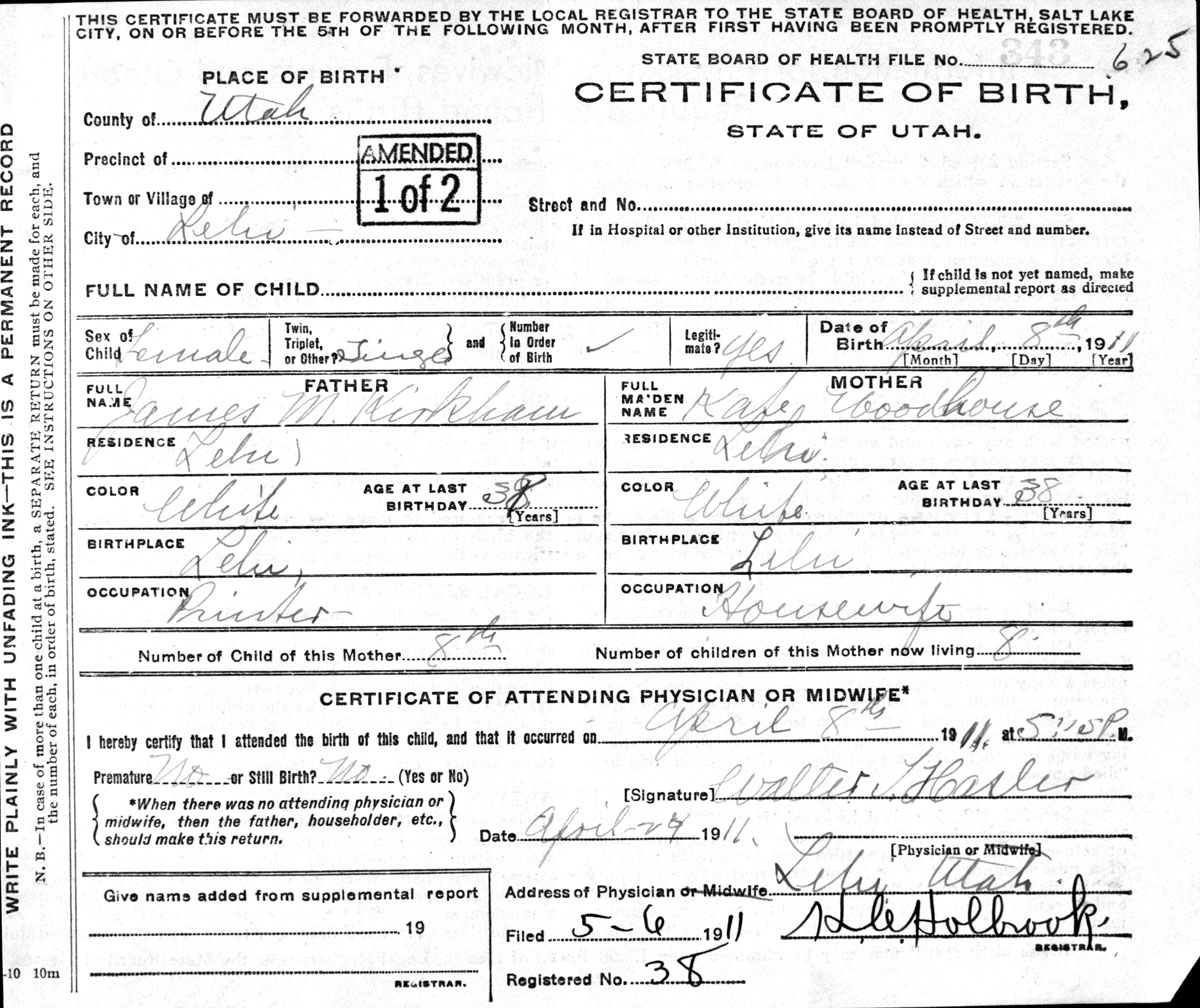 THIS CERTIFICATE MUST BE FORWARDED BY THE LOCAL REGISTRAR TO THE STATE BOARD OF HEALTH, SALT LAKE
CITY, ON OR BEFORE THE 5TH OF THE FOLLOWING MONTH, AFTER FIRST HAVING BEEN PROMPTLY REGISTERED.
WRITE PLAINLY WITH UNFADING INK—THIS IS A PERMANENT RECORD
N. B.—In case of more than one child at a birth, a SEPARATE RETURN must be made for each, and
the number of each, in order of birth, stated. SEE INSTRUCTIONS ON OTHER SIDE.
STATE BOARD OF HEALTH FILE No. 343 625
CERTIFICATE OF BIRTH,
STATE OF UTAH.
PLACE OF BIRTH
County of Utah
Precinct of
AMENDED
1 of 2
Town or Village of
City of Lehi
Street and No.
If in Hospital or other Institution, give its name instead of Street and number.
FULL NAME OF CHILD
If child is not yet named, make
supplemental report as directed
Sex of Child Female
Twin, Triplet, or Other? Single
and
Number In Order of Birth ✓
Legiti-mate? yes
Date of Birth April, 8th, 1911
[Month] [Day] [Year]
FATHER
FULL NAME James M. Kirkham
RESIDENCE Lehi
COLOR White
AGE AT LAST BIRTHDAY 38
[Years]
BIRTHPLACE Lehi,
OCCUPATION Printer
MOTHER
FULL MAIDEN NAME Kate Woodhouse
RESIDENCE Lehi
COLOR White
AGE AT LAST BIRTHDAY 38
[Years]
BIRTHPLACE Lehi
OCCUPATION Housewife
Number of Child of this Mother 8th
Number of children of this Mother now living 8
CERTIFICATE OF ATTENDING PHYSICIAN OR MIDWIFE*
I hereby certify that I attended the birth of this child, and that it occurred on April 8th 1911. at P. M.
Premature No or Still Birth? No (Yes or No)
*When there was no attending physician or
midwife, then the father, householder, etc.,
should make this return.
[Signature] Walter
Date April 1911.
[Physician or Midwife]
Give name added from supplemental report
19
REGISTRAR.
Address of Physician or Midwife Lehi Utah.
Filed 5-6 1911
Holbrook.
REGISTRAR.
Registered No. 38
-10 10m